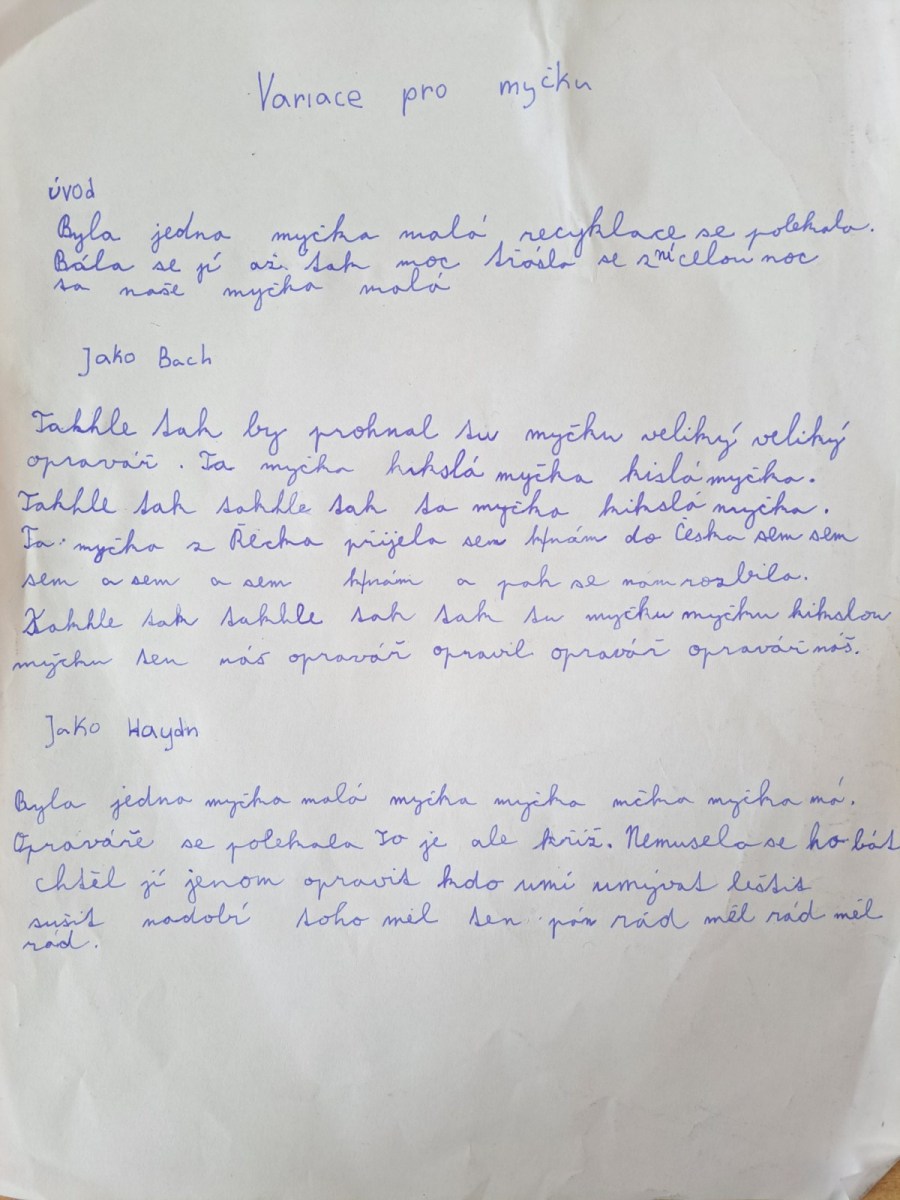 Variace pro myčku
úvod
Byla jedna myčka malá recyklace se polekala.
Bála se jí až tak moc třásla se z ní celou noc
ta naše myčka malá
Jako Bach
Takhle tak by prohnal tu myčku veliký veliký
opravář. Ta myčka kikslá myčka kislá myčka.
Takhle tak takhle tak ta myčka kikslá myčka.
Ta myčka z Řecka přijela sem k nám do Česka sem sem
sem a sem a sem k nám a pak se nám rozbila.
Takhle tak takhle tak tak tu myčku myčku kikslou
myčku ten náš opravář opravil opravář opravář náš.
Jako Haydn
Byla jedna myčka malá myčka myčka mčka myčka má.
Opraváře se polekala To je ale kříž. Nemusela se ho bát
chtěl jí jenom opravit kdo umí umývat leštit
sušit nadobí toho měl ten pán rád měl rád měl
rád.